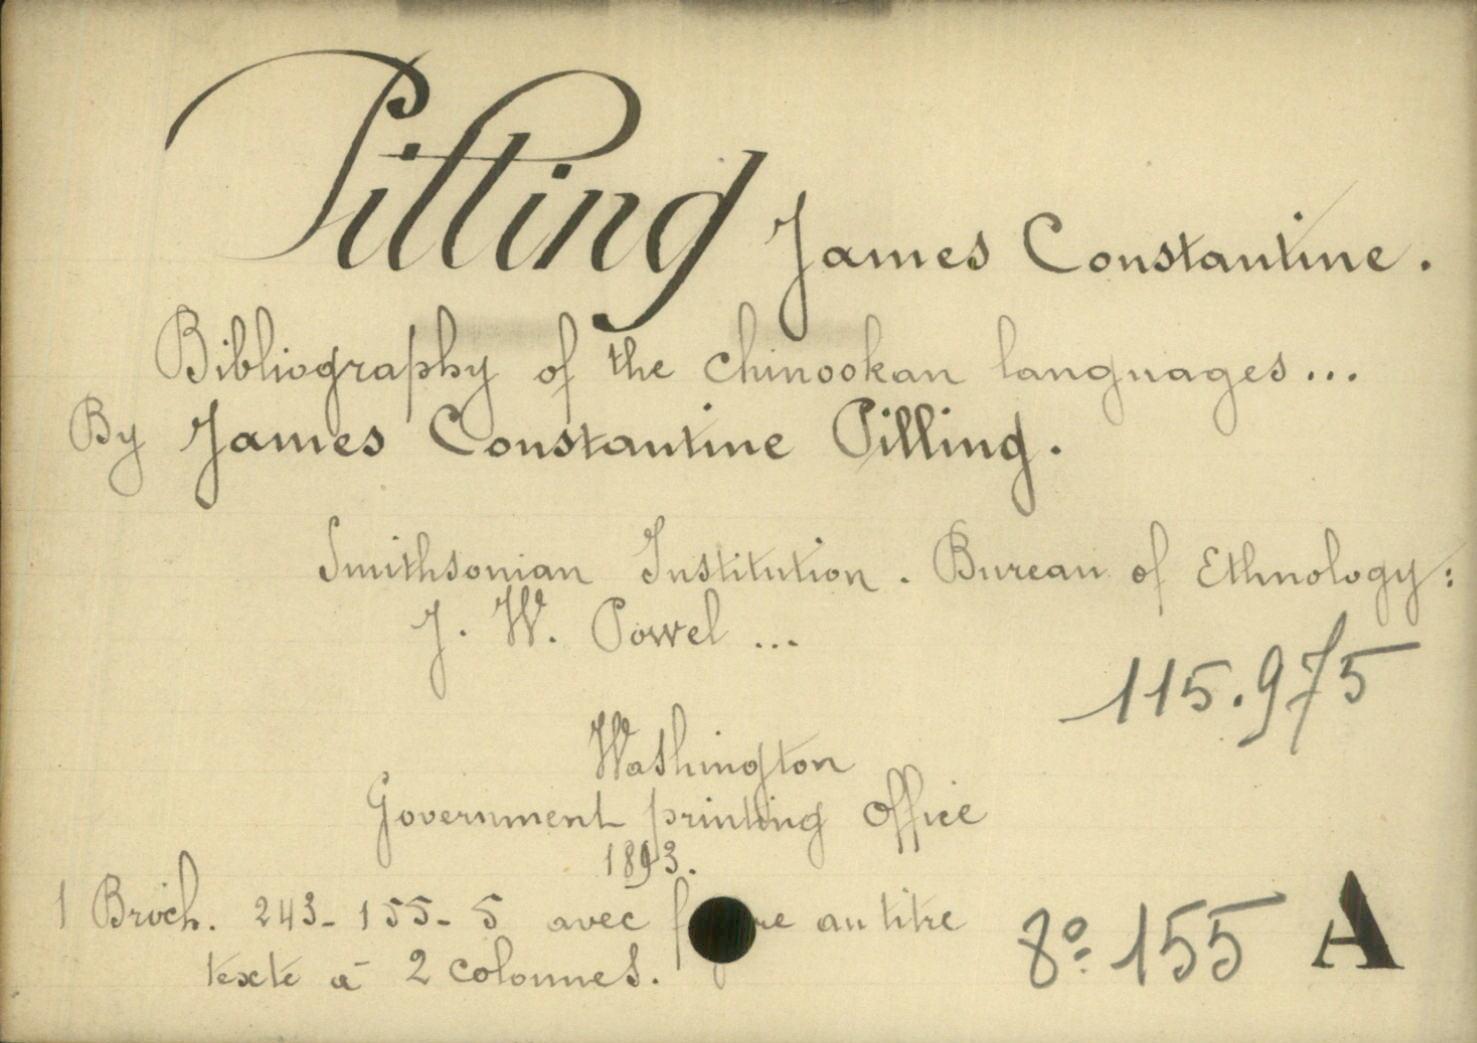 Pilling James Constantine.
Bibliography of the chinookan languages...
By James Constantine Pilling.
Smithsonian Institution. Bureau of Ethnology:
J. W. Powel ...
115.975
Washington
Government printing office
1893.
1 Broch. 243-155-5 avec au titre
texte à 2 colonnes.
8º 155 A